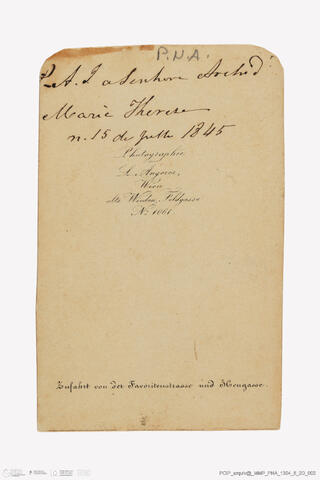 P.N.A.
S.A.I. a Senhora Archid.
Marie Therese
n. 15 de julho 1845
Photographie
L. Angerer,
Wien
alte Wieden, Feldgasse
No 1061
Zufahrt von der Favoritenstrasse und Heugasse.
PCIP_arquiv@_MIMP_PNA_1304_8_20_002